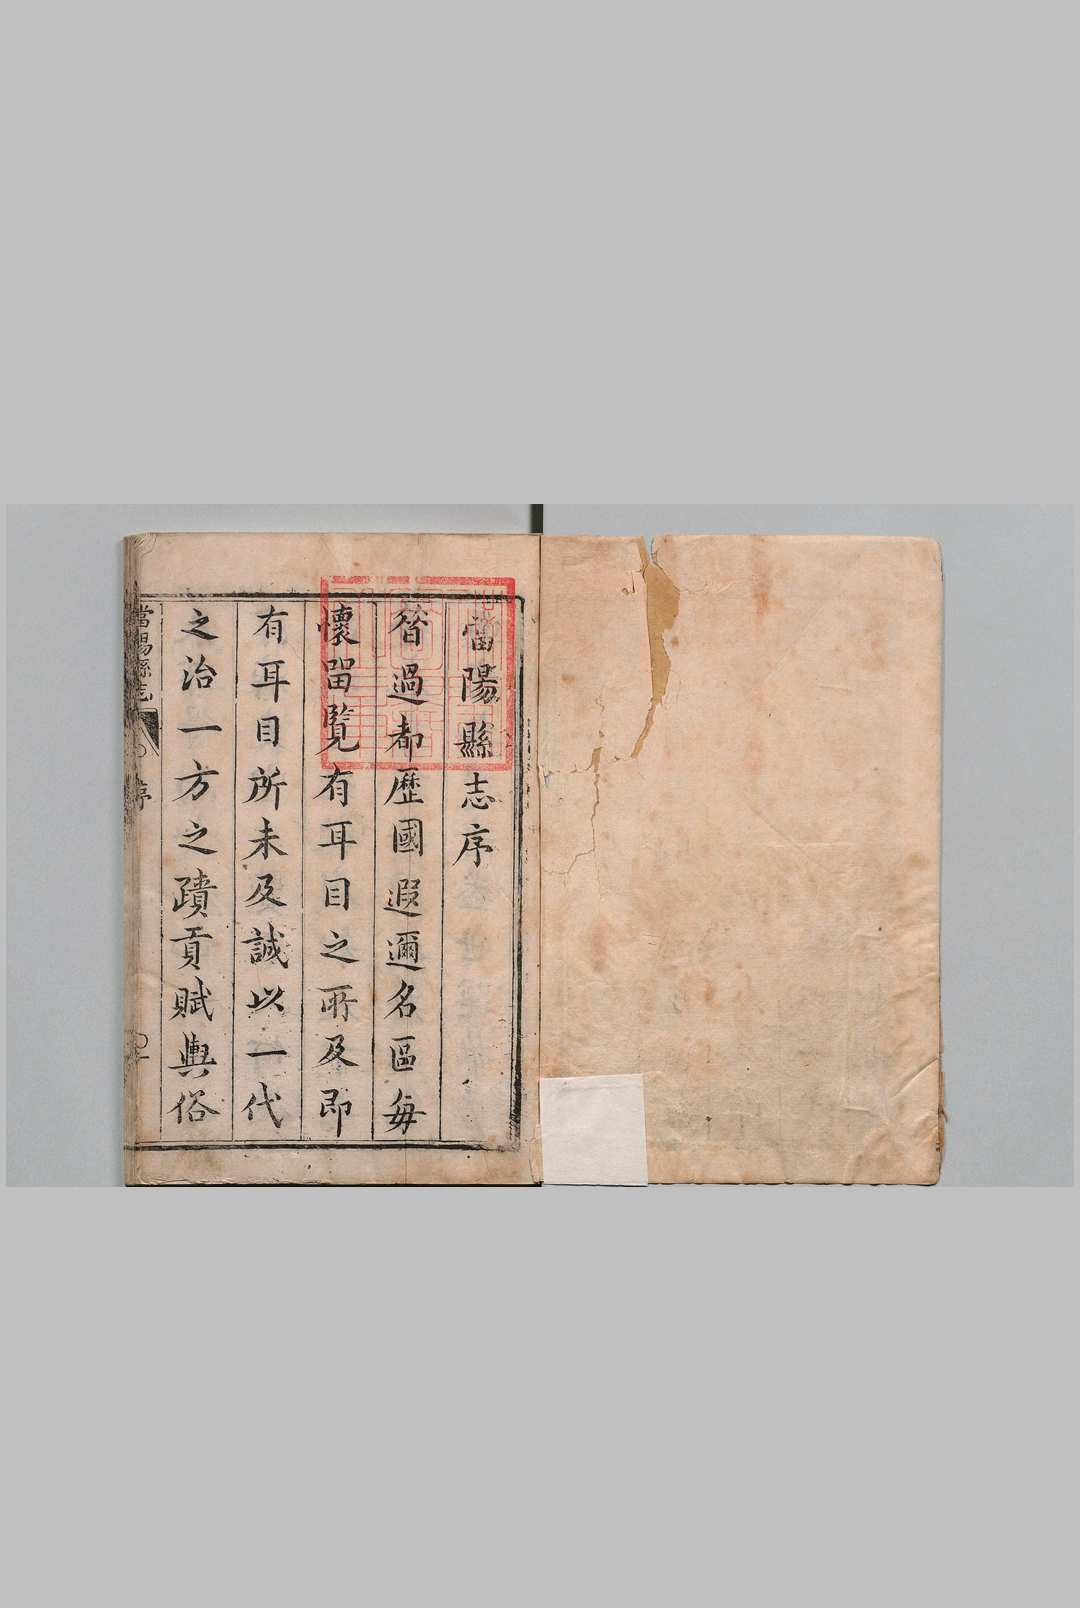 當陽縣志序
昝過都歷國遐邇名區每
懷畱覽有耳目之所及即
有耳目所未及誠以一代
之治一方之蹟貢賦輿俗
當陽縣志
序